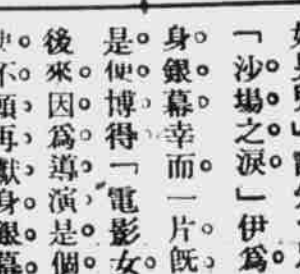 「沙場之淚」伊爲
身銀幕幸而一片既
是便博得「電影女
後來因爲導演是個
不願再獻身銀幕